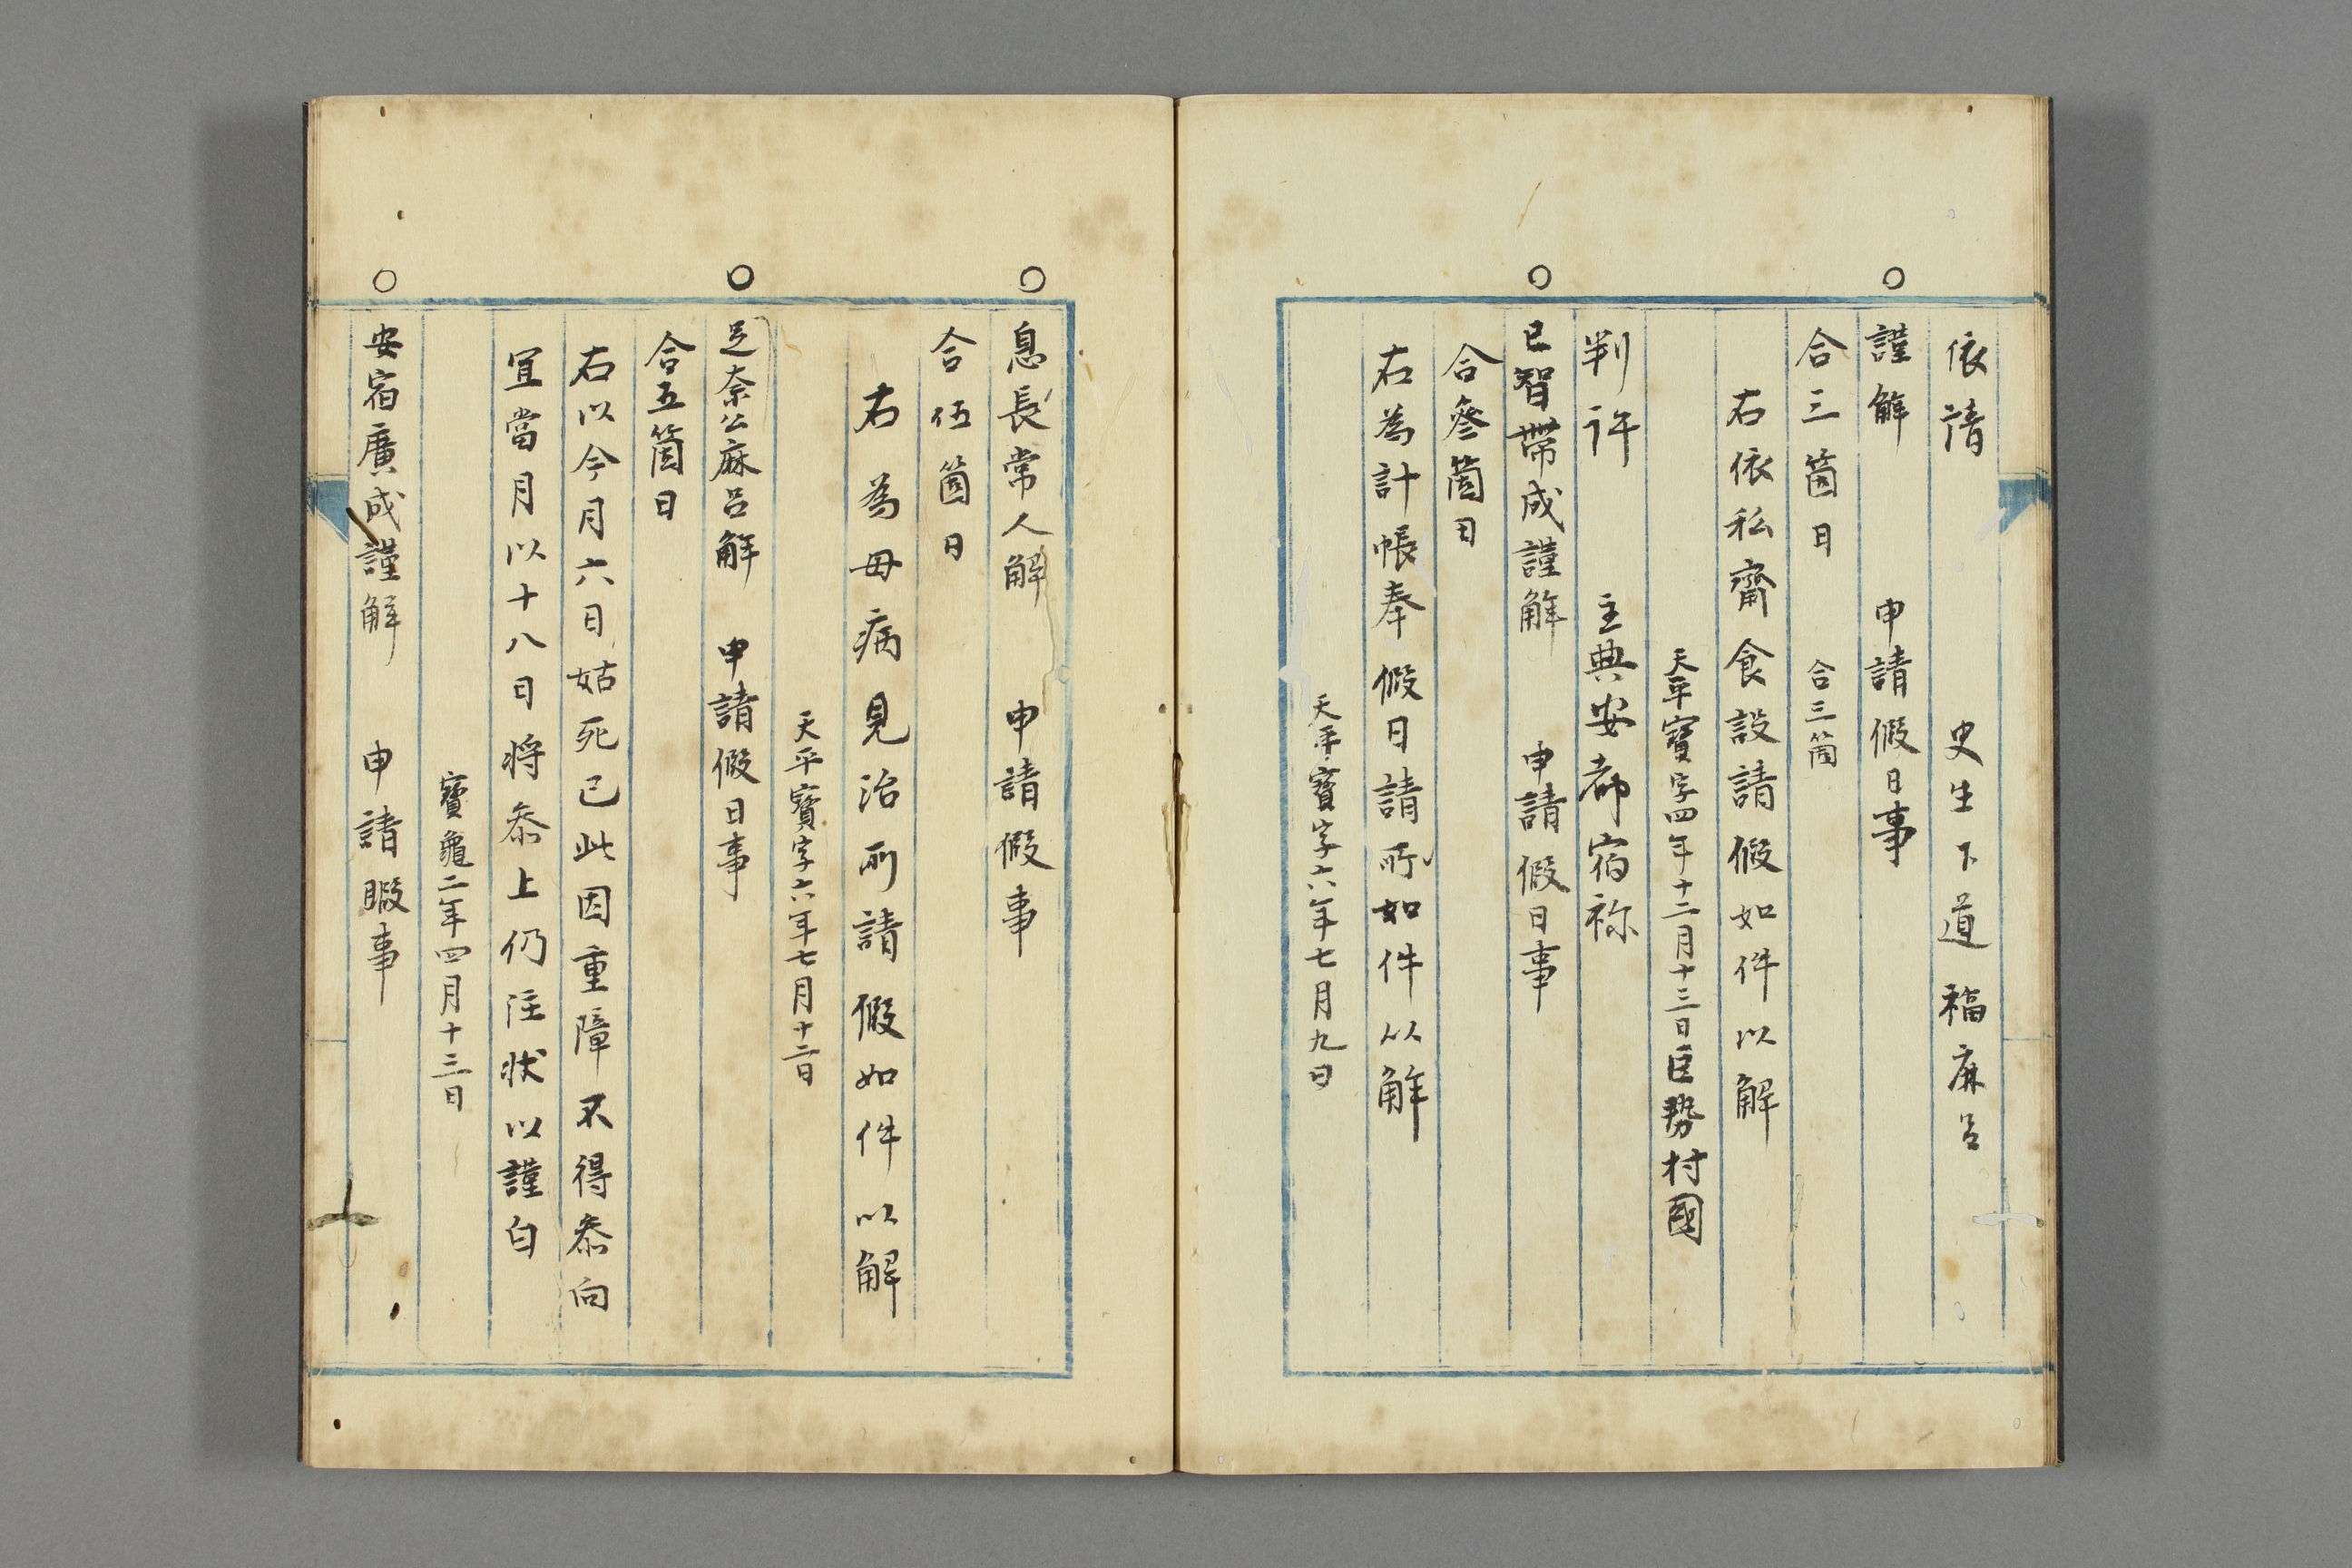 依請 史生下道福麻呂
○謹解 申請假日事
合三箇日 合三箇
右依私齋食設請假如件以解
天平寶字四年十二月十三日巨勢村國
判許 主典安都宿祢
○已智帶成謹解 申請假日事
合叄箇日
右為計帳奉假日請所如件以解
天平寶字六年七月九日
○息長常人解 申請假事
合伍箇日
右為母病見治所請假如件以解
天平寶字六年七月十二日
○足奈公麻呂解 申請假日事
合五箇日
右以今月六日姑死已此因重障不得叅向
宜當月以十八日将叅上仍注状以謹白
寶龜二年四月十三日
○安宿廣成謹解 申請暇事